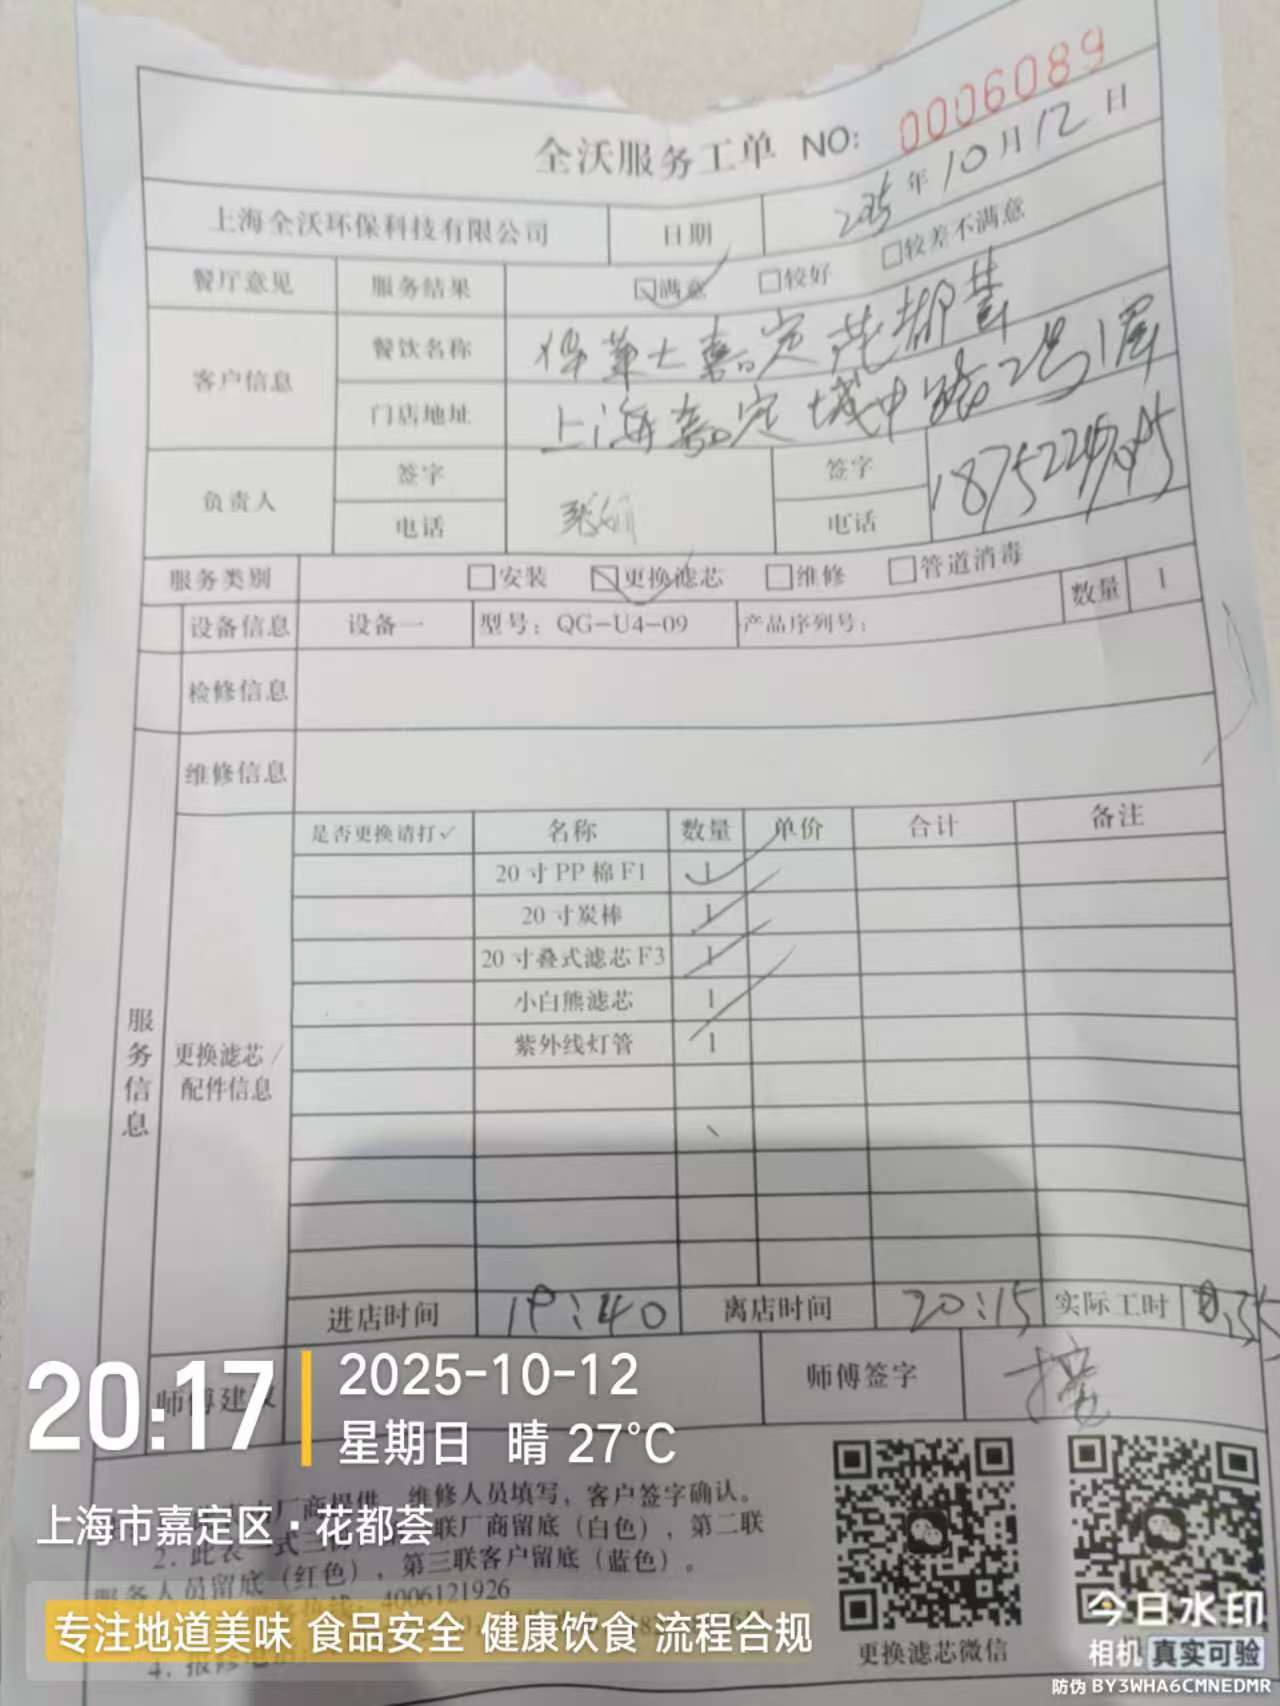 全沃服务工单 NO: 0006089
上海全沃环保科技有限公司 日期 2025年10月12日
餐厅意见 服务结果 ☑满意 □较好 □较差不满意
客户信息 餐饮名称 华莱士嘉定花都荟
门店地址 上海嘉定城中路2号1层
负责人 签字 签字
电话 电话
服务类别 □安装 ☑更换滤芯 □维修 □管道消毒
设备信息 设备一 型号：QG-U4-09 产品序列号： 数量 1
检修信息
维修信息
服务信息
更换滤芯/配件信息
是否更换请打✓ 名称 数量 单价 合计 备注
20寸PP棉F1 1
20寸炭棒 1
20寸叠式滤芯F3 1
小白熊滤芯 1
紫外线灯管 1
进店时间 19:40 离店时间 20:15 实际工时
师傅建议 师傅签字
厂商提供，维修人员填写，客户签字确认。
2. 此表一式三 联厂商留底（白色），第二联
服务人员留底（红色），第三联客户留底（蓝色）。
4006121926
更换滤芯微信
20:17
2025-10-12
星期日 晴 27°C
上海市嘉定区·花都荟
专注地道美味 食品安全 健康饮食 流程合规
今日水印
相机 真实可验
防伪 BY3WHA6CMNEDMR